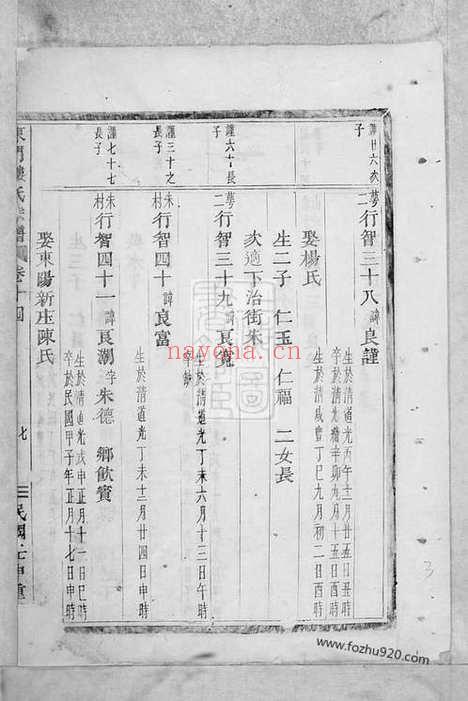 謹廿六次子
夢二 行智三十八 諱良謹
生於清道光丙午十二月廿五日丑時
卒於清光緒辛卯九月十五日酉時
娶楊氏
生於清咸豐丁巳九月初二日酉時
生二子 仁玉 仁福 二女長
次適下治街朱
謹六十長子
夢二 行智三十九 諱良寬
生於清道光丁未六月十三日午時
卒缺
謹三十之長子
朱村 行智四十 諱良富
生於清道光丁未十二月廿四日申時
謹七十七長子
朱村 行智四十一 諱良潮 字朱德 鄉飲賓
生於清道光戊申正月十一日巳時
卒於民國甲子年正月十七日申時
娶東陽新庄陳氏
東門樓氏宗譜 卷十四
七
民國壬申重
3
nayona.cn
www.fozhu920.com